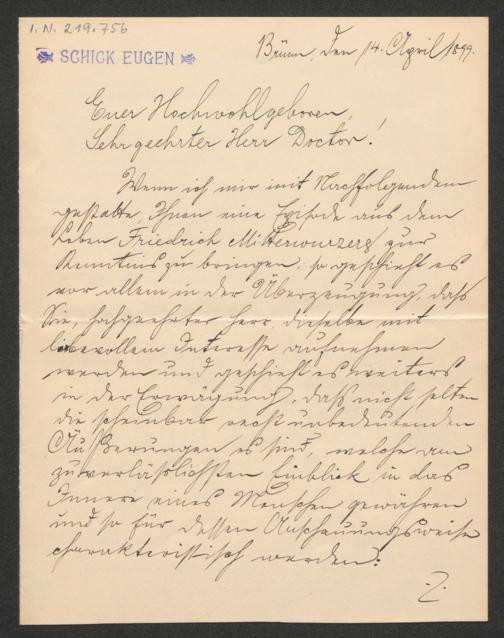 I. N. 219.756
SCHICK EUGEN
Brünn, den 14. April 1899.
Euer Hochwohlgeboren,
Sehr geehrter Herr Doctor!
Wenn ich mir mit Nachfolgendem
gestatte, Ihnen eine Episode aus dem
Leben Friedrich Mitterwurzers zur
Kenntnis zu bringen, so geschieht es
vor allem in der Überzeugung, dass
Sie, hochgeehrter Herr, dieselbe mit
liebevollem Interesse aufnehmen
werden und geschieht es weiters
in der Erwägung, dass nicht selten
die scheinbar recht unbedeutenden
Äußerungen es sind, welche am
zuverlässlichsten Einblick in das
Innere eines Menschen gewähren
und so für dessen Anschauungsweise
charakteristisch werden.